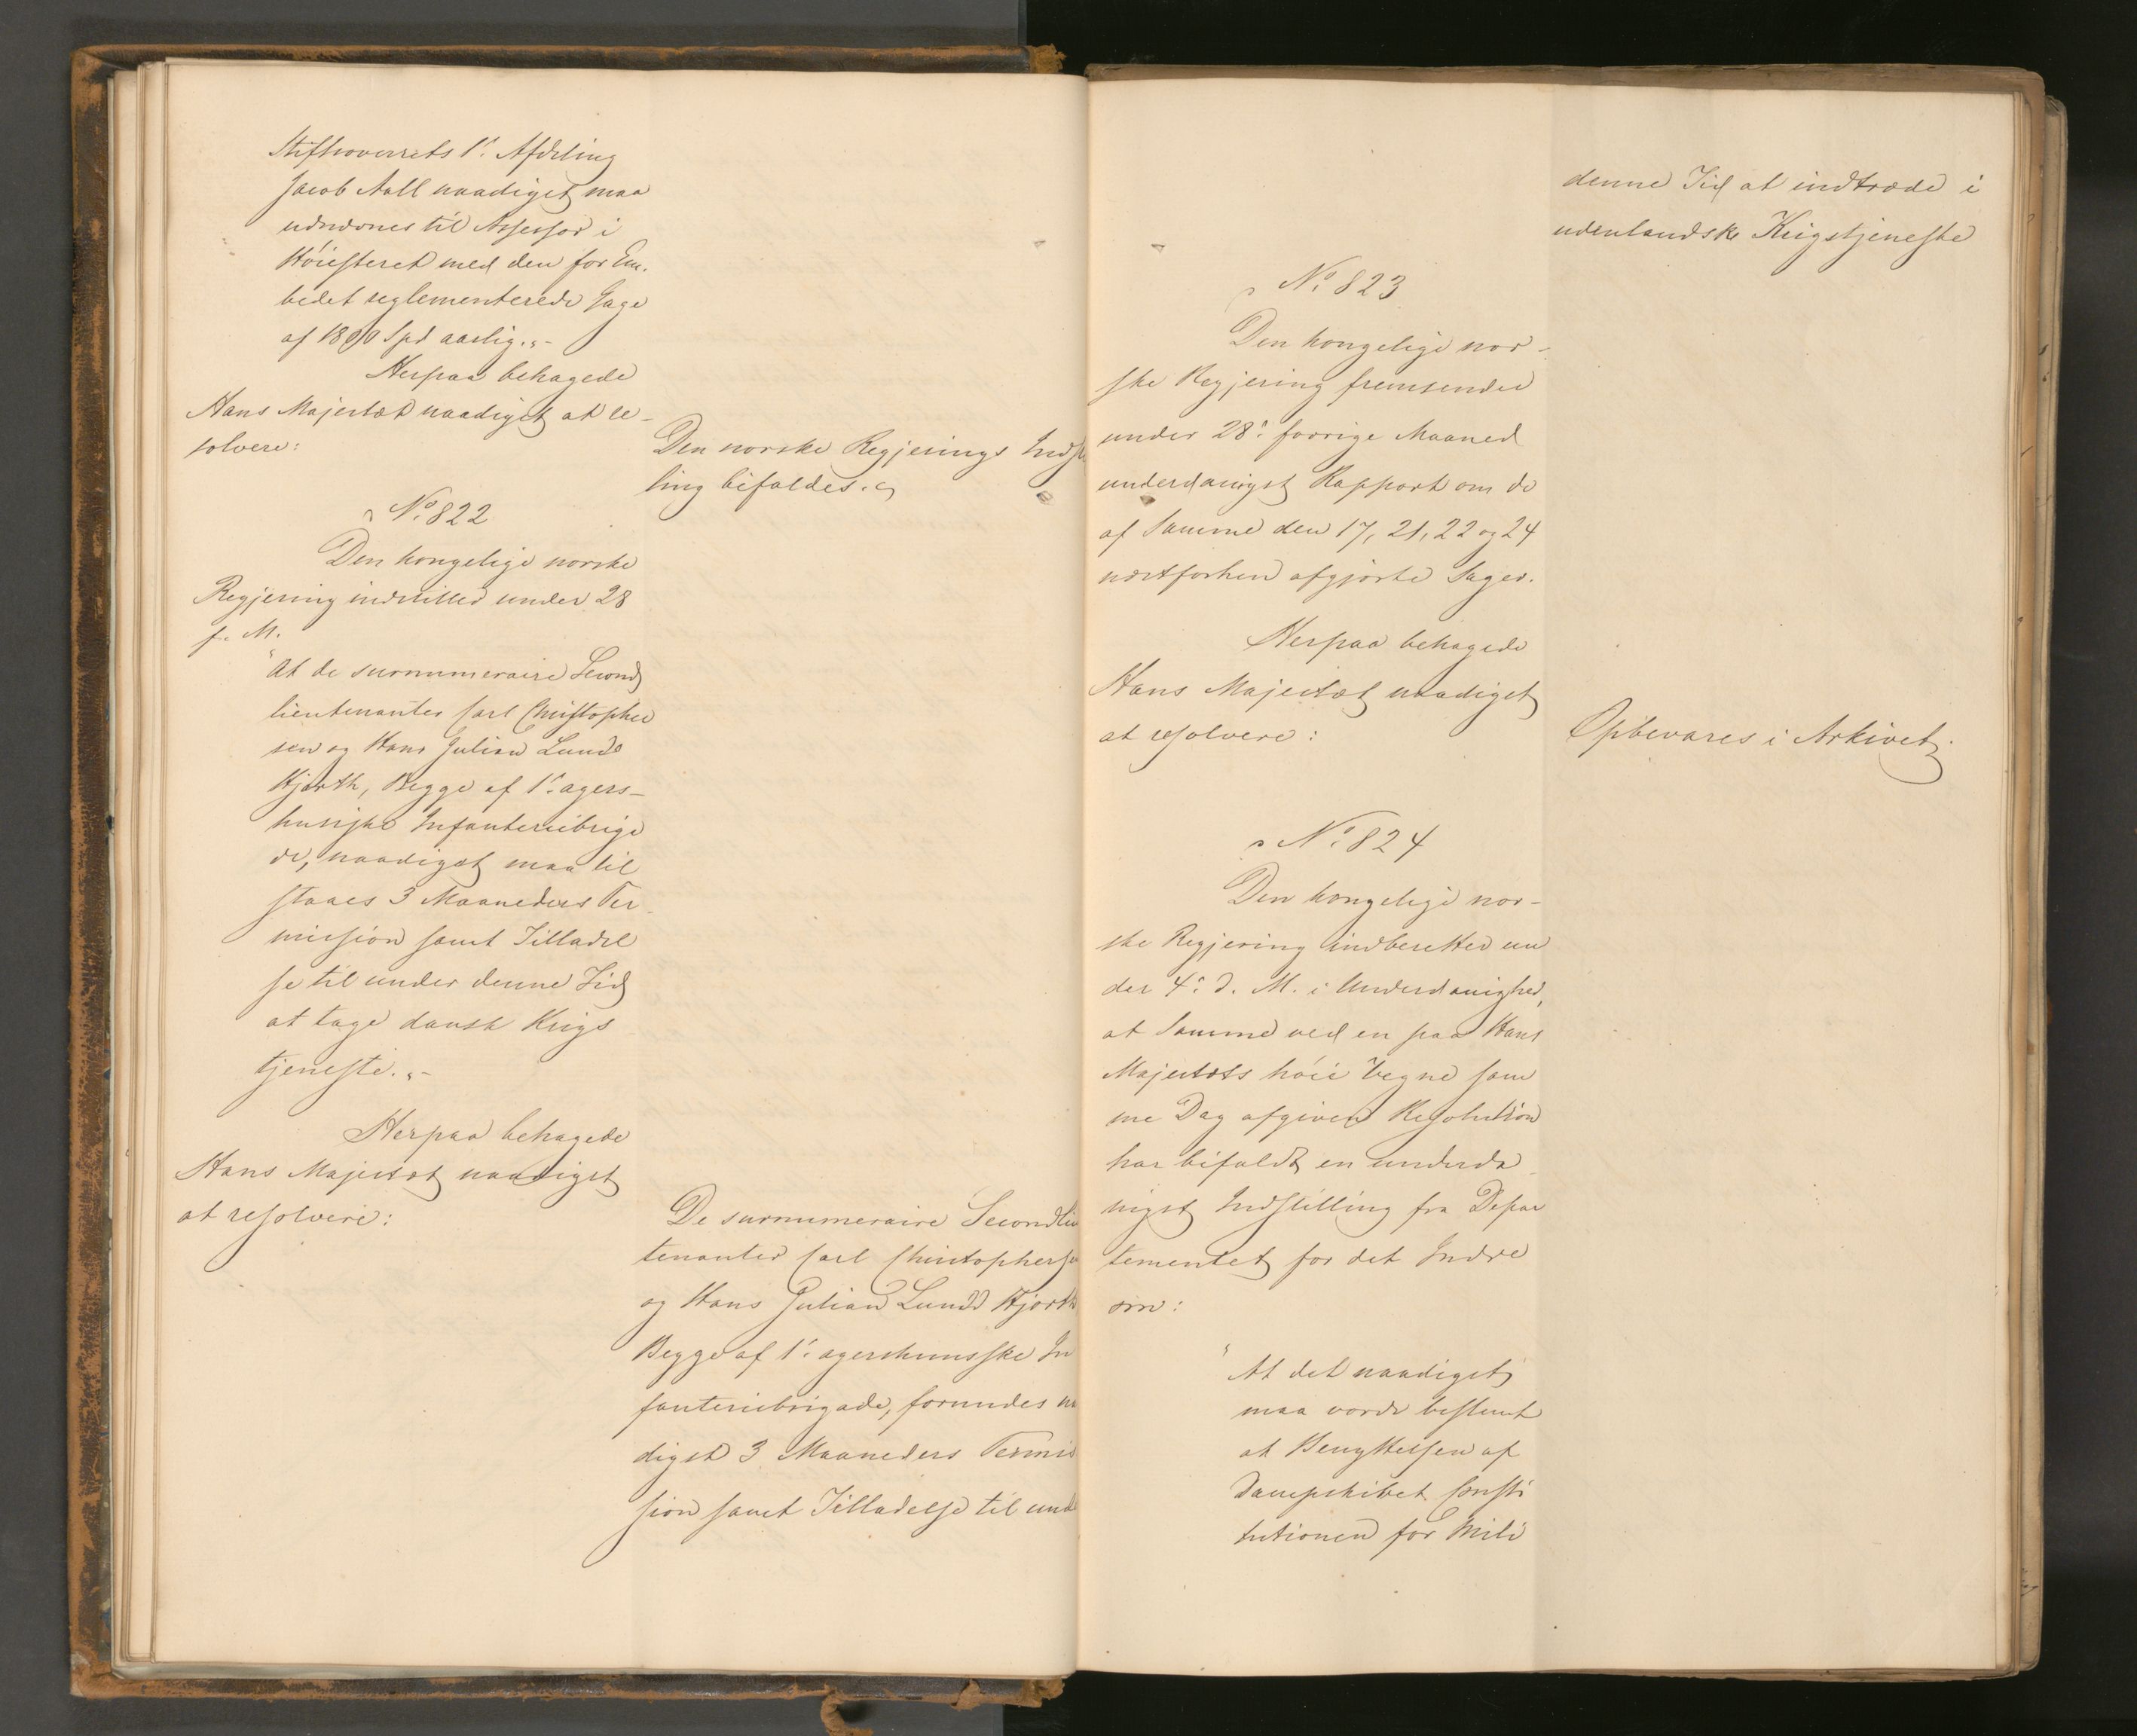 Stiftsoverrets 1ste Afdeling
Jacob Aall naadigst maa
udnævnes til Assessor i
Høiesteret med den for Em-
bedet reglementerede Gage
af 1800 Spd aarlig."-
Herpaa behagede
Hans Majestæt naadigst at re-
solvere:
Den norske Regjerings Indstil
ling bifaldes.
No. 822
Den kongelige norske
Regjering indstiller under 28
f. M.
"At de surnumeraire Second
lieutenanter Carl Christopher
sen og Hans Julian Lunds
Hjorth, Begge af 1ste agers-
husiske Infanteribriga
de, naadigst maa til
staaes 3 Maaneders Per-
mission samt Tilladel
se til under denne Tid
at tage dansk Krigs
tjeneste."-
Herpaa behagede
Hans Majestæt naadigst
at resolvere:
De surnumeraire Secondlieu
tenanter Carl Christophersen
og Hans Julian Lunds Hjorth
Begge af 1ste agershusiske In
fanteribrigade, forundes naa
digst 3 Maaneders Permis
sion samt Tilladelse til under
denne Tid at indtræde i
udenlandsk Krigstjeneste
No. 823
Den kongelige nor-
ske Regjering fremsender
under 28de forrige Maaned
underdanigst Rapport om de
af Samme den 17, 21, 22 og 24
næstforhen afgjorte Sager.
Herpaa behagede
Hans Majestæt naadigst
at resolvere:
Opbevares i Arkivet.
No. 824
Den kongelige nor-
ske Regjering indberetter un
der 4de d. M. i Underdanighed,
at Samme ved en paa Hans
Majestæts høie Vegne sam
me Dag afgiven Resolution
har bifaldt en underda
nigst Indstilling fra Depar
tementet for det Indre
om:
"At det naadigst
maa vorde bestemt
at Benyttelsen af
Dampskibet Consti
tutionen for Mili